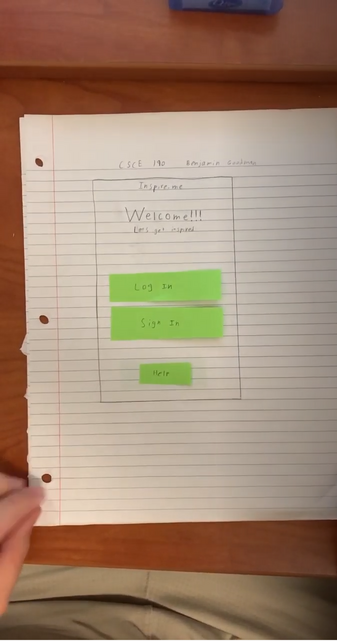 CSCE 190 Benjamin
Inspire.me
Welcome!!!
Lets get inspired
Log In
Sign In
Help